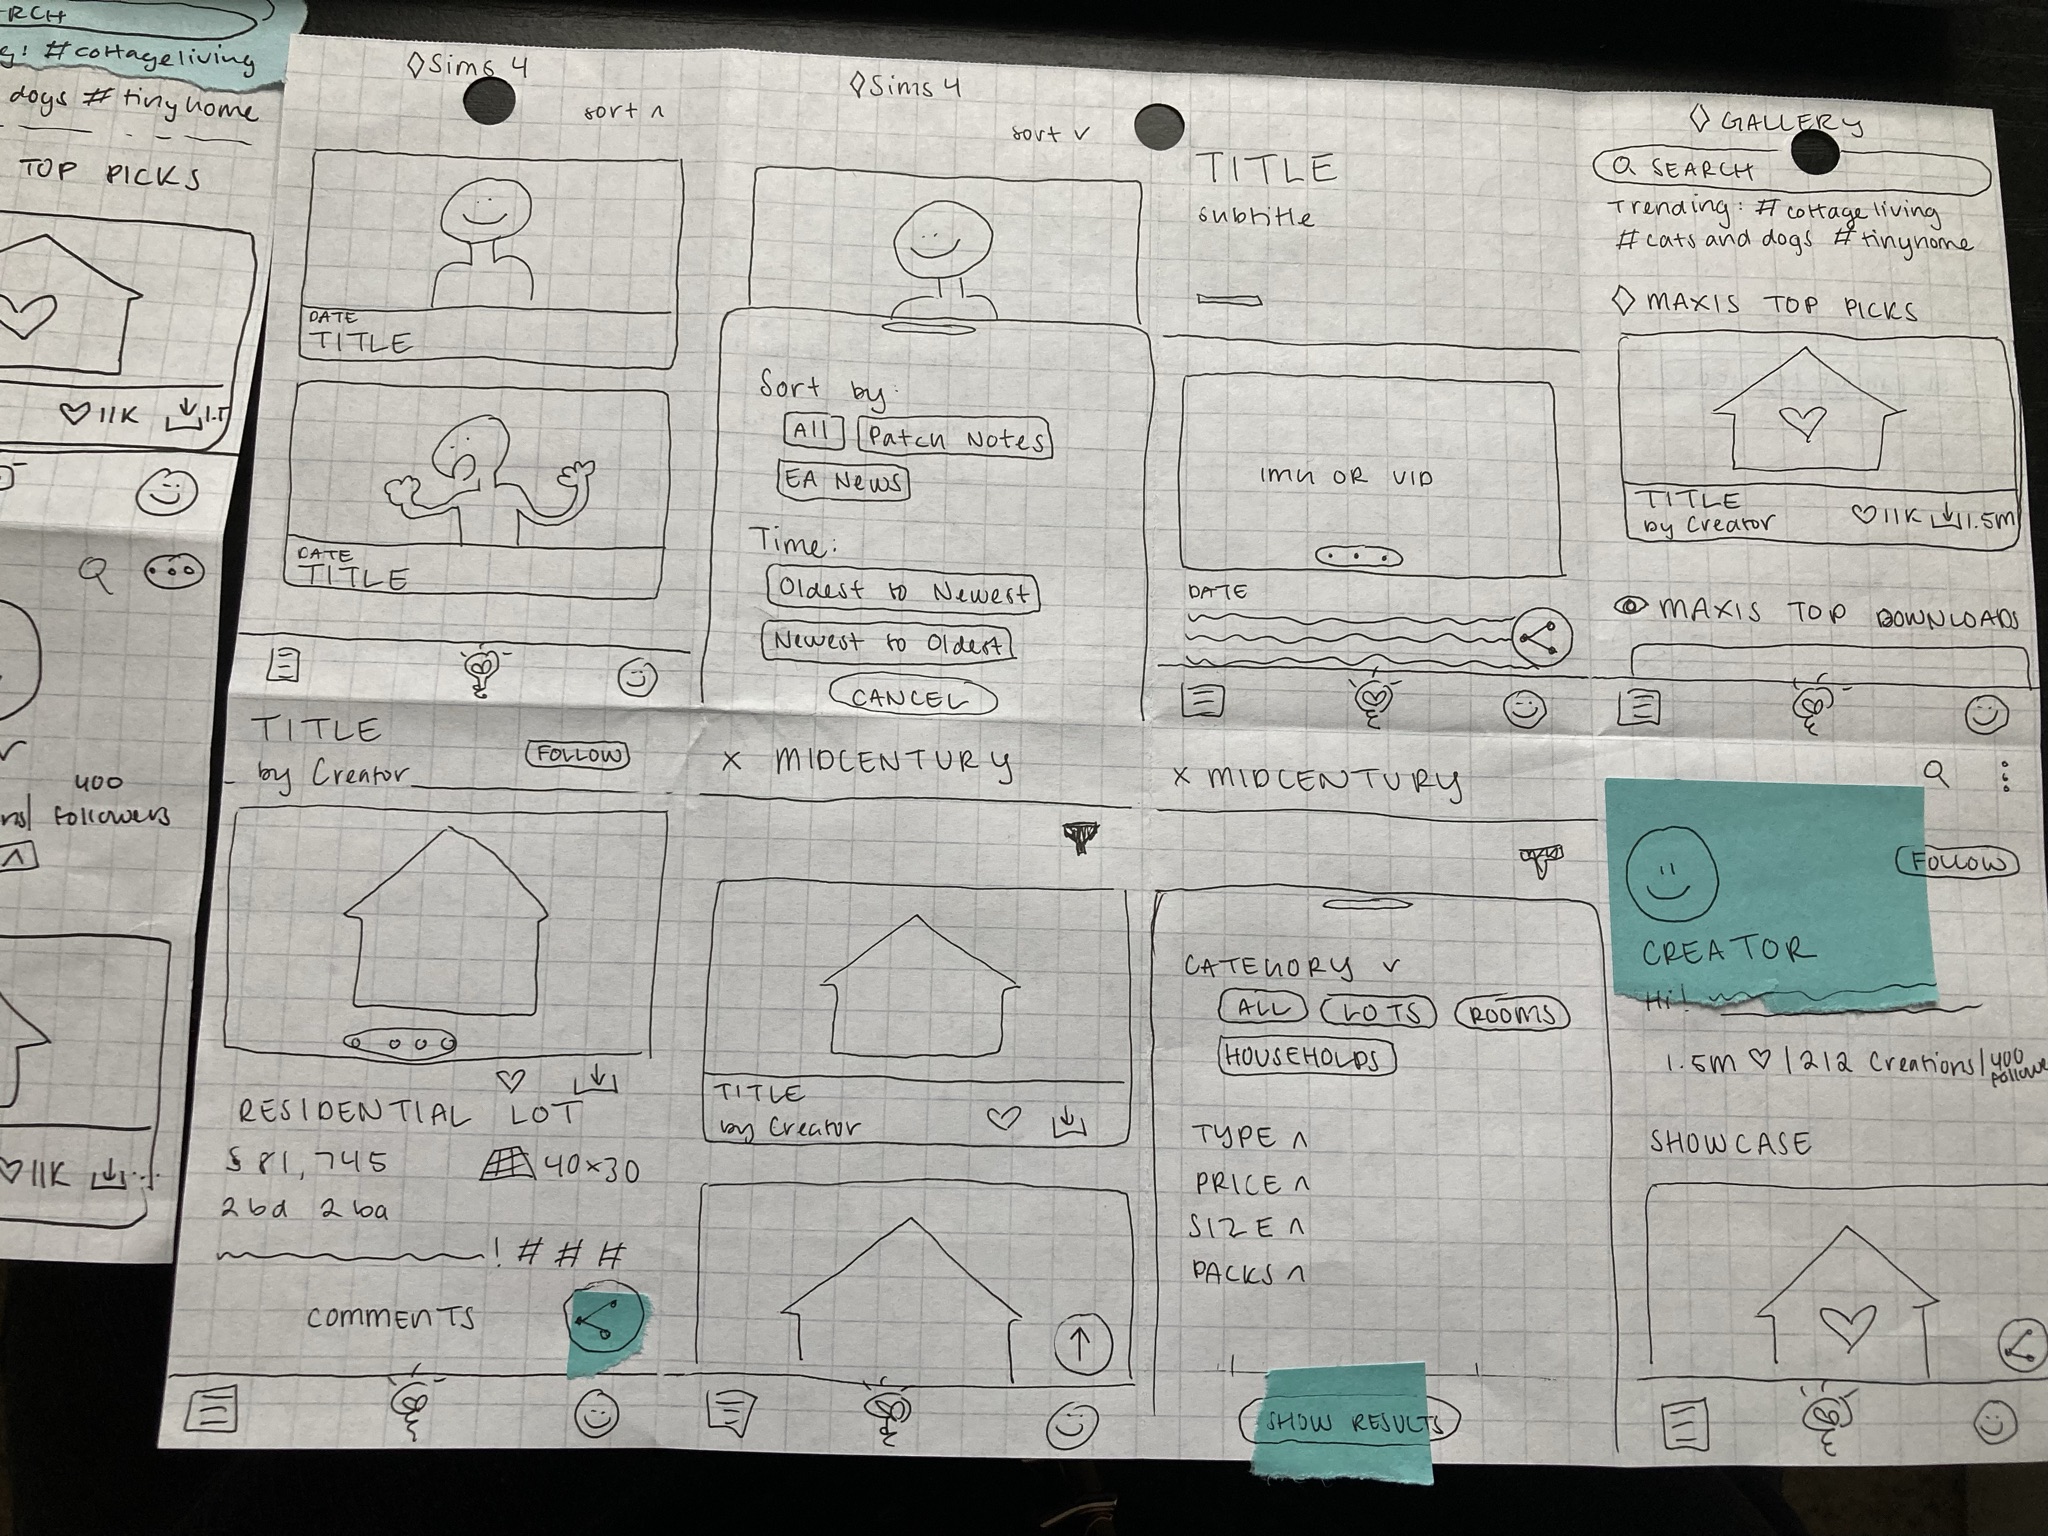 RCH
#cottageliving
dogs #tinyhome
TOP PICKS
11K 1.5
400
followers
11K
Sims 4
sort ^
DATE
TITLE
DATE
TITLE
Sims 4
sort v
Sort by:
All Patch Notes
EA News
Time:
Oldest to Newest
Newest to Oldest
CANCEL
TITLE
subtitle
IMG OR VID
DATE
GALLERY
SEARCH
Trending: #cottageliving
#cats and dogs #tinyhome
MAXIS TOP PICKS
TITLE
by Creator 11K 1.5m
MAXIS TOP DOWNLOADS
TITLE
by Creator FOLLOW
RESIDENTIAL LOT
§81,745 40x30
2bd 2ba
! # # #
COMMENTS
x MIDCENTURY
TITLE
by Creator
x MIDCENTURY
CATEGORY v
ALL LOTS ROOMS
HOUSEHOLDS
TYPE ^
PRICE ^
SIZE ^
PACKS ^
SHOW RESULTS
FOLLOW
CREATOR
Hi!
1.5m | 212 Creations | 400
followe
SHOWCASE